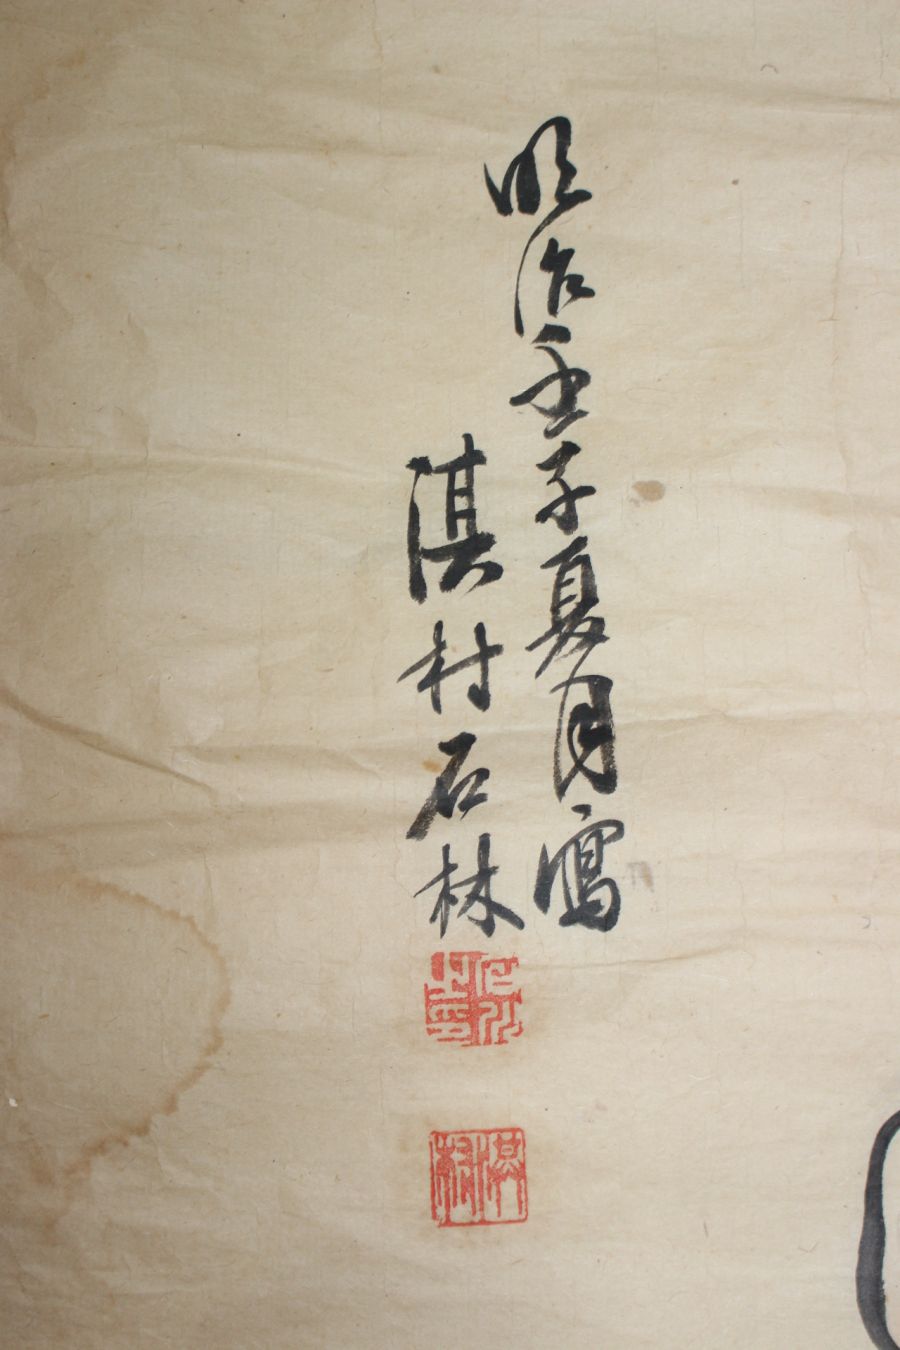 明治壬子夏月寫
淇村石林
淇村